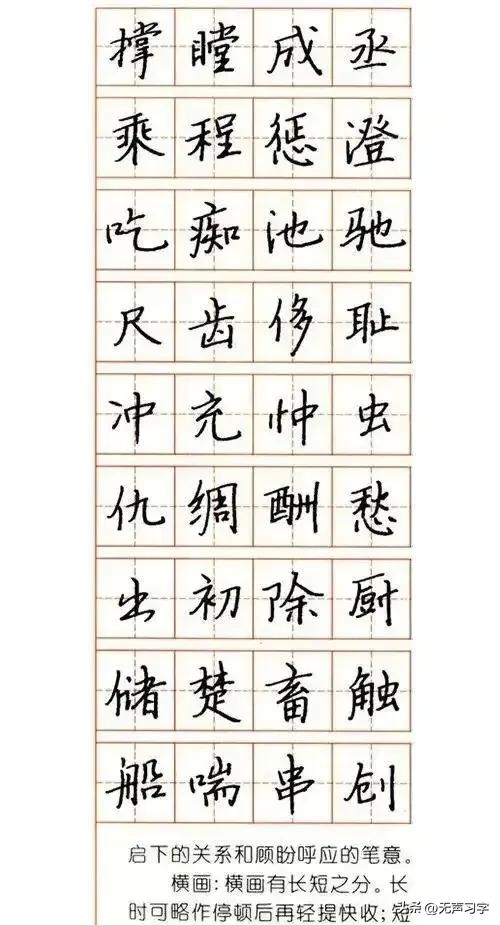 撑瞠成丞
乘程惩澄
吃痴池驰
尺齿侈耻
冲充忡虫
仇绸酬愁
出初除厨
储楚畜触
船喘串创
启下的关系和顾盼呼应的笔意。
横画：横画有长短之分。长
时可略作停顿后再轻提快收；短
头条@无声习字